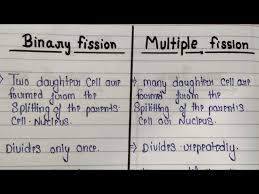 Binary fission
Multiple fission
→ Two daughter cell are
formed from the
Splitting of the parents
Cell-Nucleus.
Divides only once.
→ many daughter cell are
formed from the
Splitting of the parents
Cell or Nucleus.
→ Divides repeatedly.